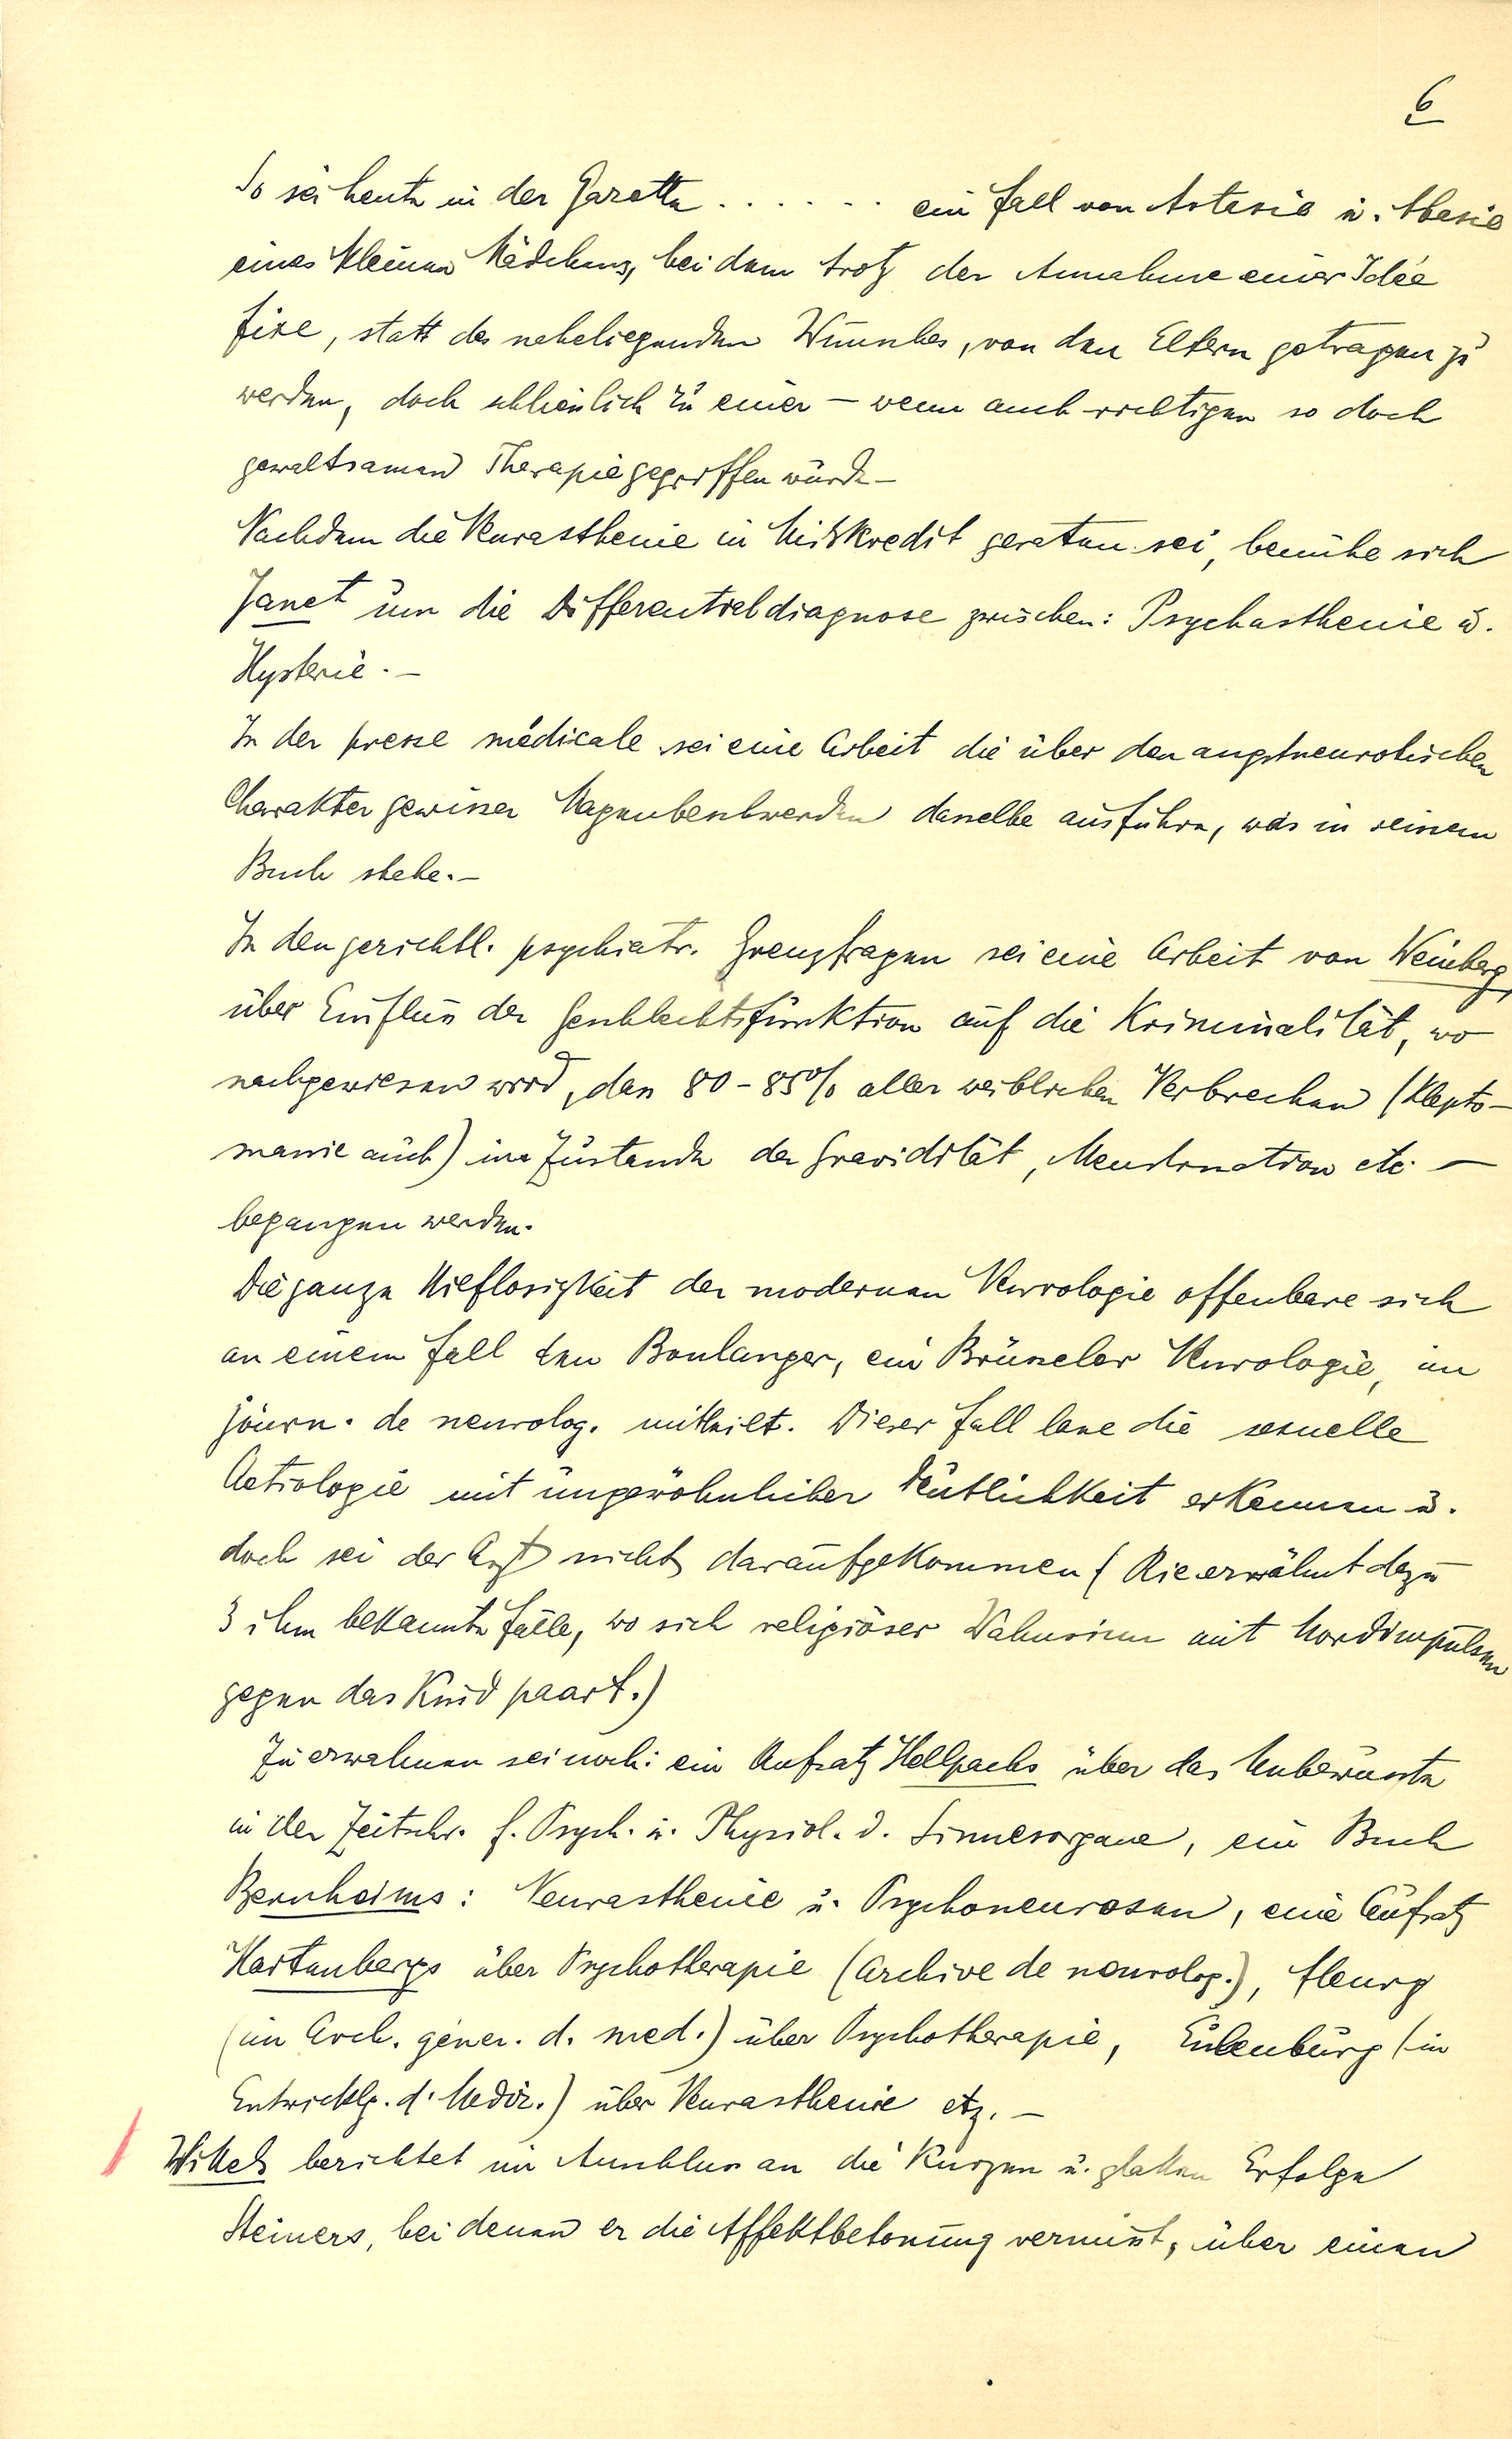 6
So sei heute in der Gazette . . . . . . ein Fall von Astasie u. Abasie
eines kleinen Mädchens, bei dem trotz der Annahme einer Idée
fixe, statt des naheliegenden Wunsches, von den Eltern getragen zu
werden, doch schliesslich zu einer – wenn auch richtigen so doch
gewaltsamen Therapie gegriffen würde –
Nachdem die Neurasthenie in Misskredit geraten sei, bemühe sich
Janet um die Differentialdiagnose zwischen: Psychasthenie u.
Hysterie. –
In der presse médicale sei eine Arbeit die über den angstneurotischen
Charakter gewisser Magenbeschwerden dasselbe ausführe, was in seinem
Buch stehe. –
In den gerichtl. psychiatr. Grenzfragen sei eine Arbeit von Weinberg,
über Einfluss der Geschlechtsfunktion auf die Kriminalität, wo
nachgewiesen wird, dass 80 – 85% aller weiblichen Verbrechen (Klepto-
manie auch) im Zustande der Gravidität, Menstruation etc. –
begangen werden.
Die ganze Hilflosigkeit der modernen Neurologie offenbare sich
an einem Fall den Boulanger, ein Brüsseler Neurologie, im
journ. de neurolog. mitteilt. Dieser Fall lasse die sexuelle
Aetiologie mit ungewöhnlicher Deutlichkeit erkennen u.
doch sei der Arzt nicht daraufgekommen (Rie erwähnt dazu
3 ihm bekannte Fälle, wo sich religiöser Wahnsinn mit Mordimpulsen
gegen das Kind paart.)
Zu erwähnen sei noch: ein Aufsatz Hellpachs über das Unbewusste
in der Zeitschr. f. Psych. u. Physiol. d. Sinnesorgane, ein Buch
Bernheims: Neurasthenie u. Psychoneurosen, eine Aufsatz
Hartenbergs über Psychotherapie (Archive de neurolog.), Fleury
(im Arch. géner. d. med.) über Psychotherapie, Eulenburg (in
Entwicklg. d. Mediz.) über Neurasthenie etz. –
Wittels berichtet im Anschluss an die kurzen u. glatten Erfolge
Steiners, bei denen er die Affektbetonung vermisst, über einen